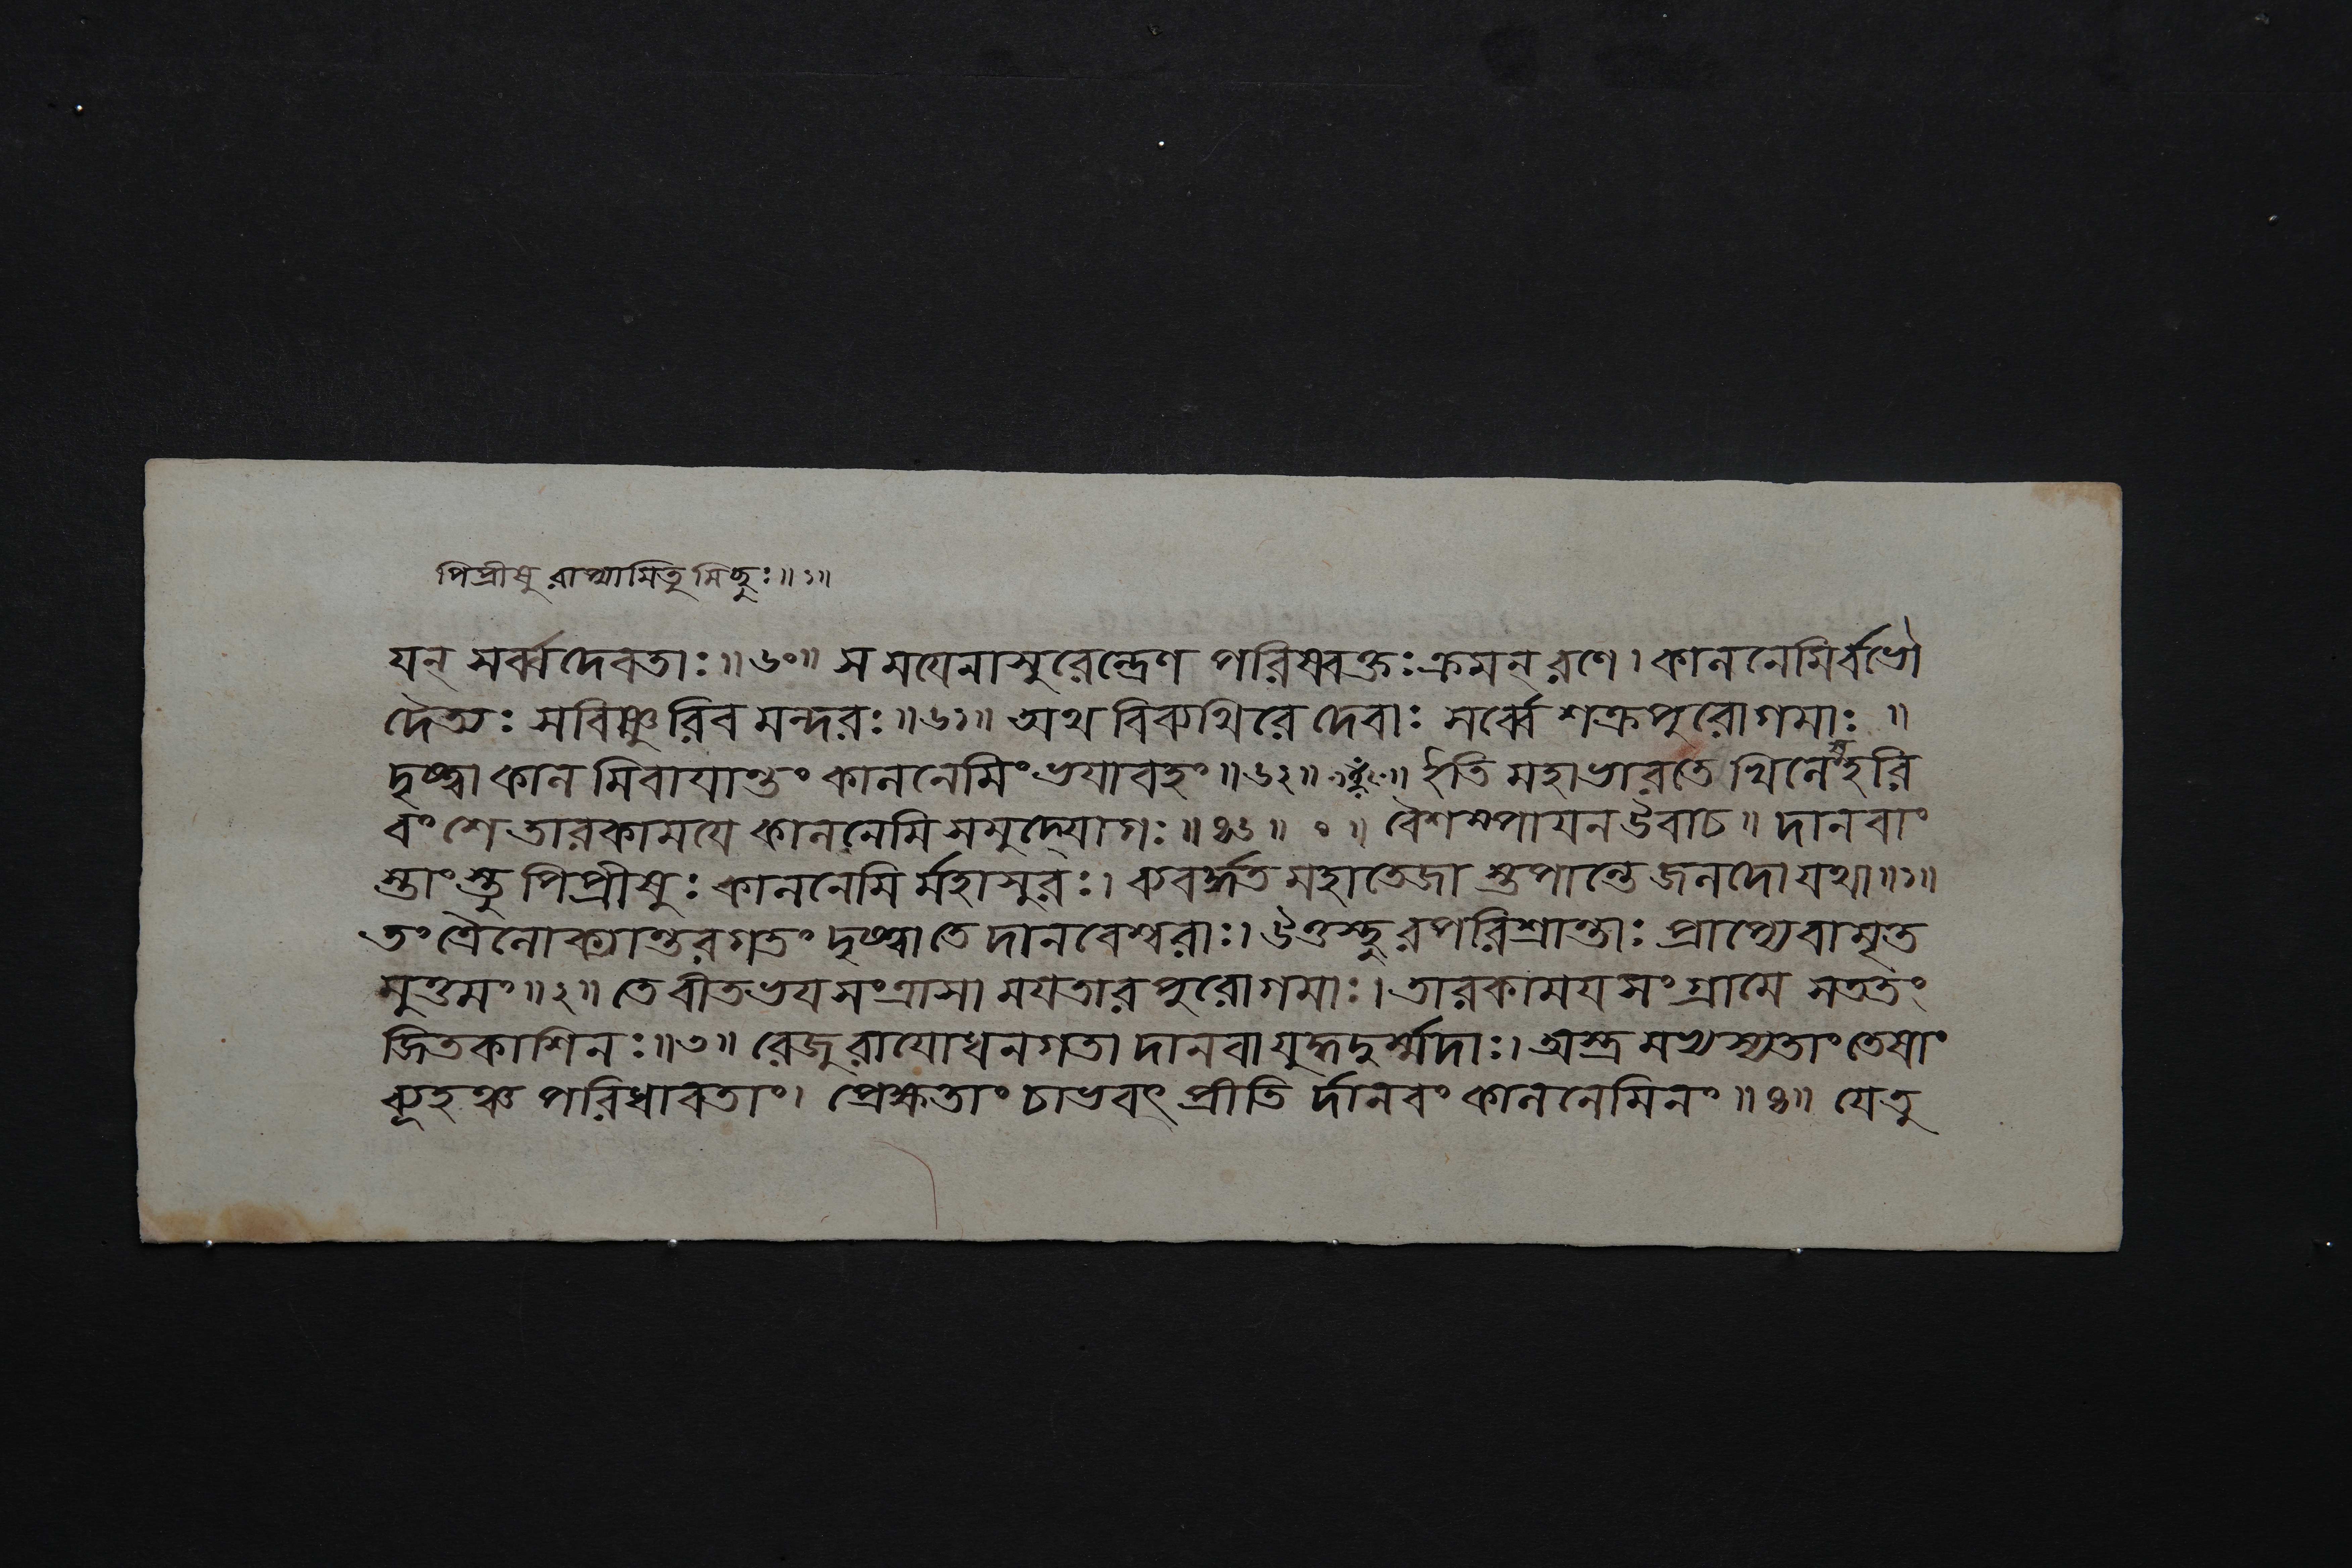 পিপ্রীষুরাপ্যায়িতুমিচ্ছুঃ॥১॥
যন্ সর্ব্বদেবতাঃ॥৬০॥ স ময়েনাসুরেন্দ্রেণ পরিষ্বক্তঃ ক্রমন্ রণে। কালনেমির্বভৌ
দৈত্যঃ সবিষ্ণুরিব মন্দরঃ॥৬১॥ অথ বিব্যথিরে দেবাঃ সর্ব্বে শক্রপুরোগমাঃ॥
দৃষ্ট্বা কালমিবায়ান্তং কালনেমিং ভয়াবহং॥৬২॥ ইতি মহাভারতে খিলেষু হরি
বংশে তারকাময়ে কালনেমিসমুদ্যোগঃ॥৪৬॥ ০॥ বৈশম্পায়ন উবাচ॥ দানবাং
স্তাংস্তু পিপ্রীষুঃ কালনেমির্মহাসুরঃ। ব্যবর্দ্ধত মহাতেজাস্তপান্তে জলদো যথা॥১॥
তং ত্রৈলোক্যান্তরগতং দৃষ্ট্বা তে দানবেশ্বরাঃ। উত্তস্থুরপরিশ্রান্তাঃ প্রাপ্যেবামৃত
মুত্তমং॥২॥ তে বীতভয়সংত্রাসা ময়তারপুরোগমাঃ। তারকাময়সংগ্রামে সততং
জিতকাশিনঃ॥৩॥ রেজুরায়োধনগতা দানবা যুদ্ধদুর্ম্মদাঃ। অস্ত্রমভ্যস্যতাং তেষাং
ব্যূহঞ্চ পরিধাবতাং। প্রেক্ষতাং চাভবৎ প্রীতির্দানবং কালনেমিনং॥৪॥ যে তু